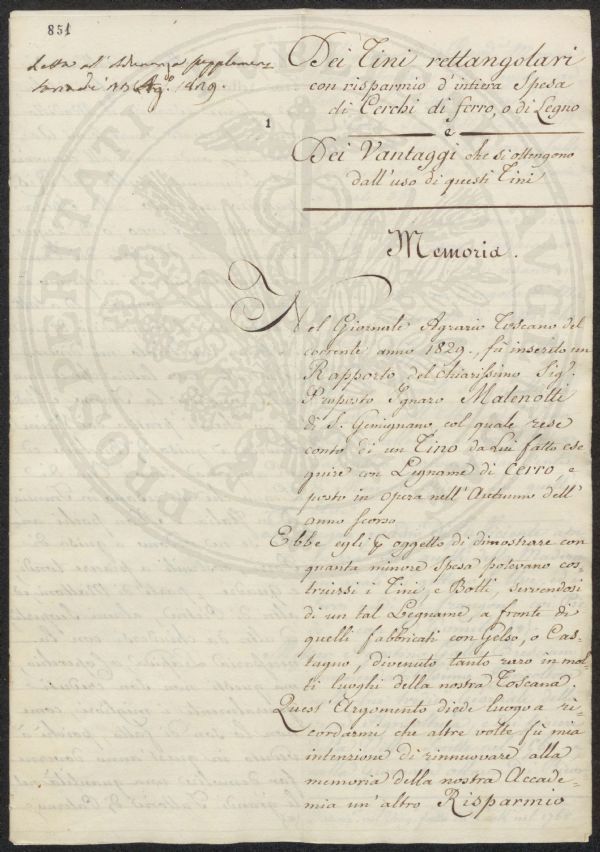 851
Letta all'Adunanza supplemen-
taria di 23 Ago. 1829.
Dei Tini rettangolari
con risparmio d'intiera Spesa
di Cerchi di ferro, o di Legno
1
e
Dei Vantaggi che si ottengono
dall'uso di questi Tini
Memoria.
Nel Giornale Agrario Toscano del
corrente anno 1829., fù inserito un
Rapporto del Chiarissimo Sigr.
Proposto Ignazo Malenotti
di S. Gimignano, col quale rese
conto di un Tino da Lui fatto ese
guire con Legname di Cerro, e
posto in opera nell'Autunno dell'
anno scorso
Ebbe egli p oggetto di dimostrare con
quanta minore Spesa potevano cos
truirsi i Tini, e Botti, servendosi
di un tal Legname, a fronte di
quelli fabbricati con Gelso, o Cas-
tagno, divenuto tanto raro in mol-
ti luoghi della nostra Toscana.
Quest'Argomento diede luogo a ri-
cordarmi che altre volte fù mia
intenzione di rinnuovare alla
memoria della nostra Accade-
mia un'altro Risparmio